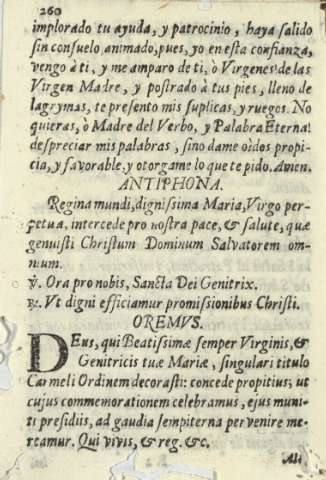 260
implorado tu ayuda, y patrocinio, haya salido
sin consuelo animado, pues, yo en esta confianza,
vengo à ti, y me amparo de ti, ò Virgenes de las
Virgen Madre, y postrado à tus pies, lleno de
lagrymas, te presento mis suplicas, y ruegos. No
quieras, ò Madre del Verbo, y Palabra Eterna!
despreciar mis palabras, sino dame oìdos propi-
cia, y favorable, y otorgame lo que te pido. Amen.
ANTIPHONA.
Regina mundi, dignissima Maria, Virgo per-
petua, intercede pro nostra pace, & salute, quæ
genuisti Christum Dominum Salvatorem om-
nium.
℣. Ora pro nobis, Sancta Dei Genitrix.
℟. Vt digni efficiamur promissionibus Christi.
OREMVS.
DEus, qui Beatissimæ semper Virginis, &
Genitricis tuæ Mariæ, singulari titulo
Carmeli Ordinem decorasti: concede propitius; ut
cujus commemorationem celebramus, ejus muni-
ti presidiis, ad gaudia sempiterna pervenire me-
reamur. Qui vivis, & reg. &c.
Ala